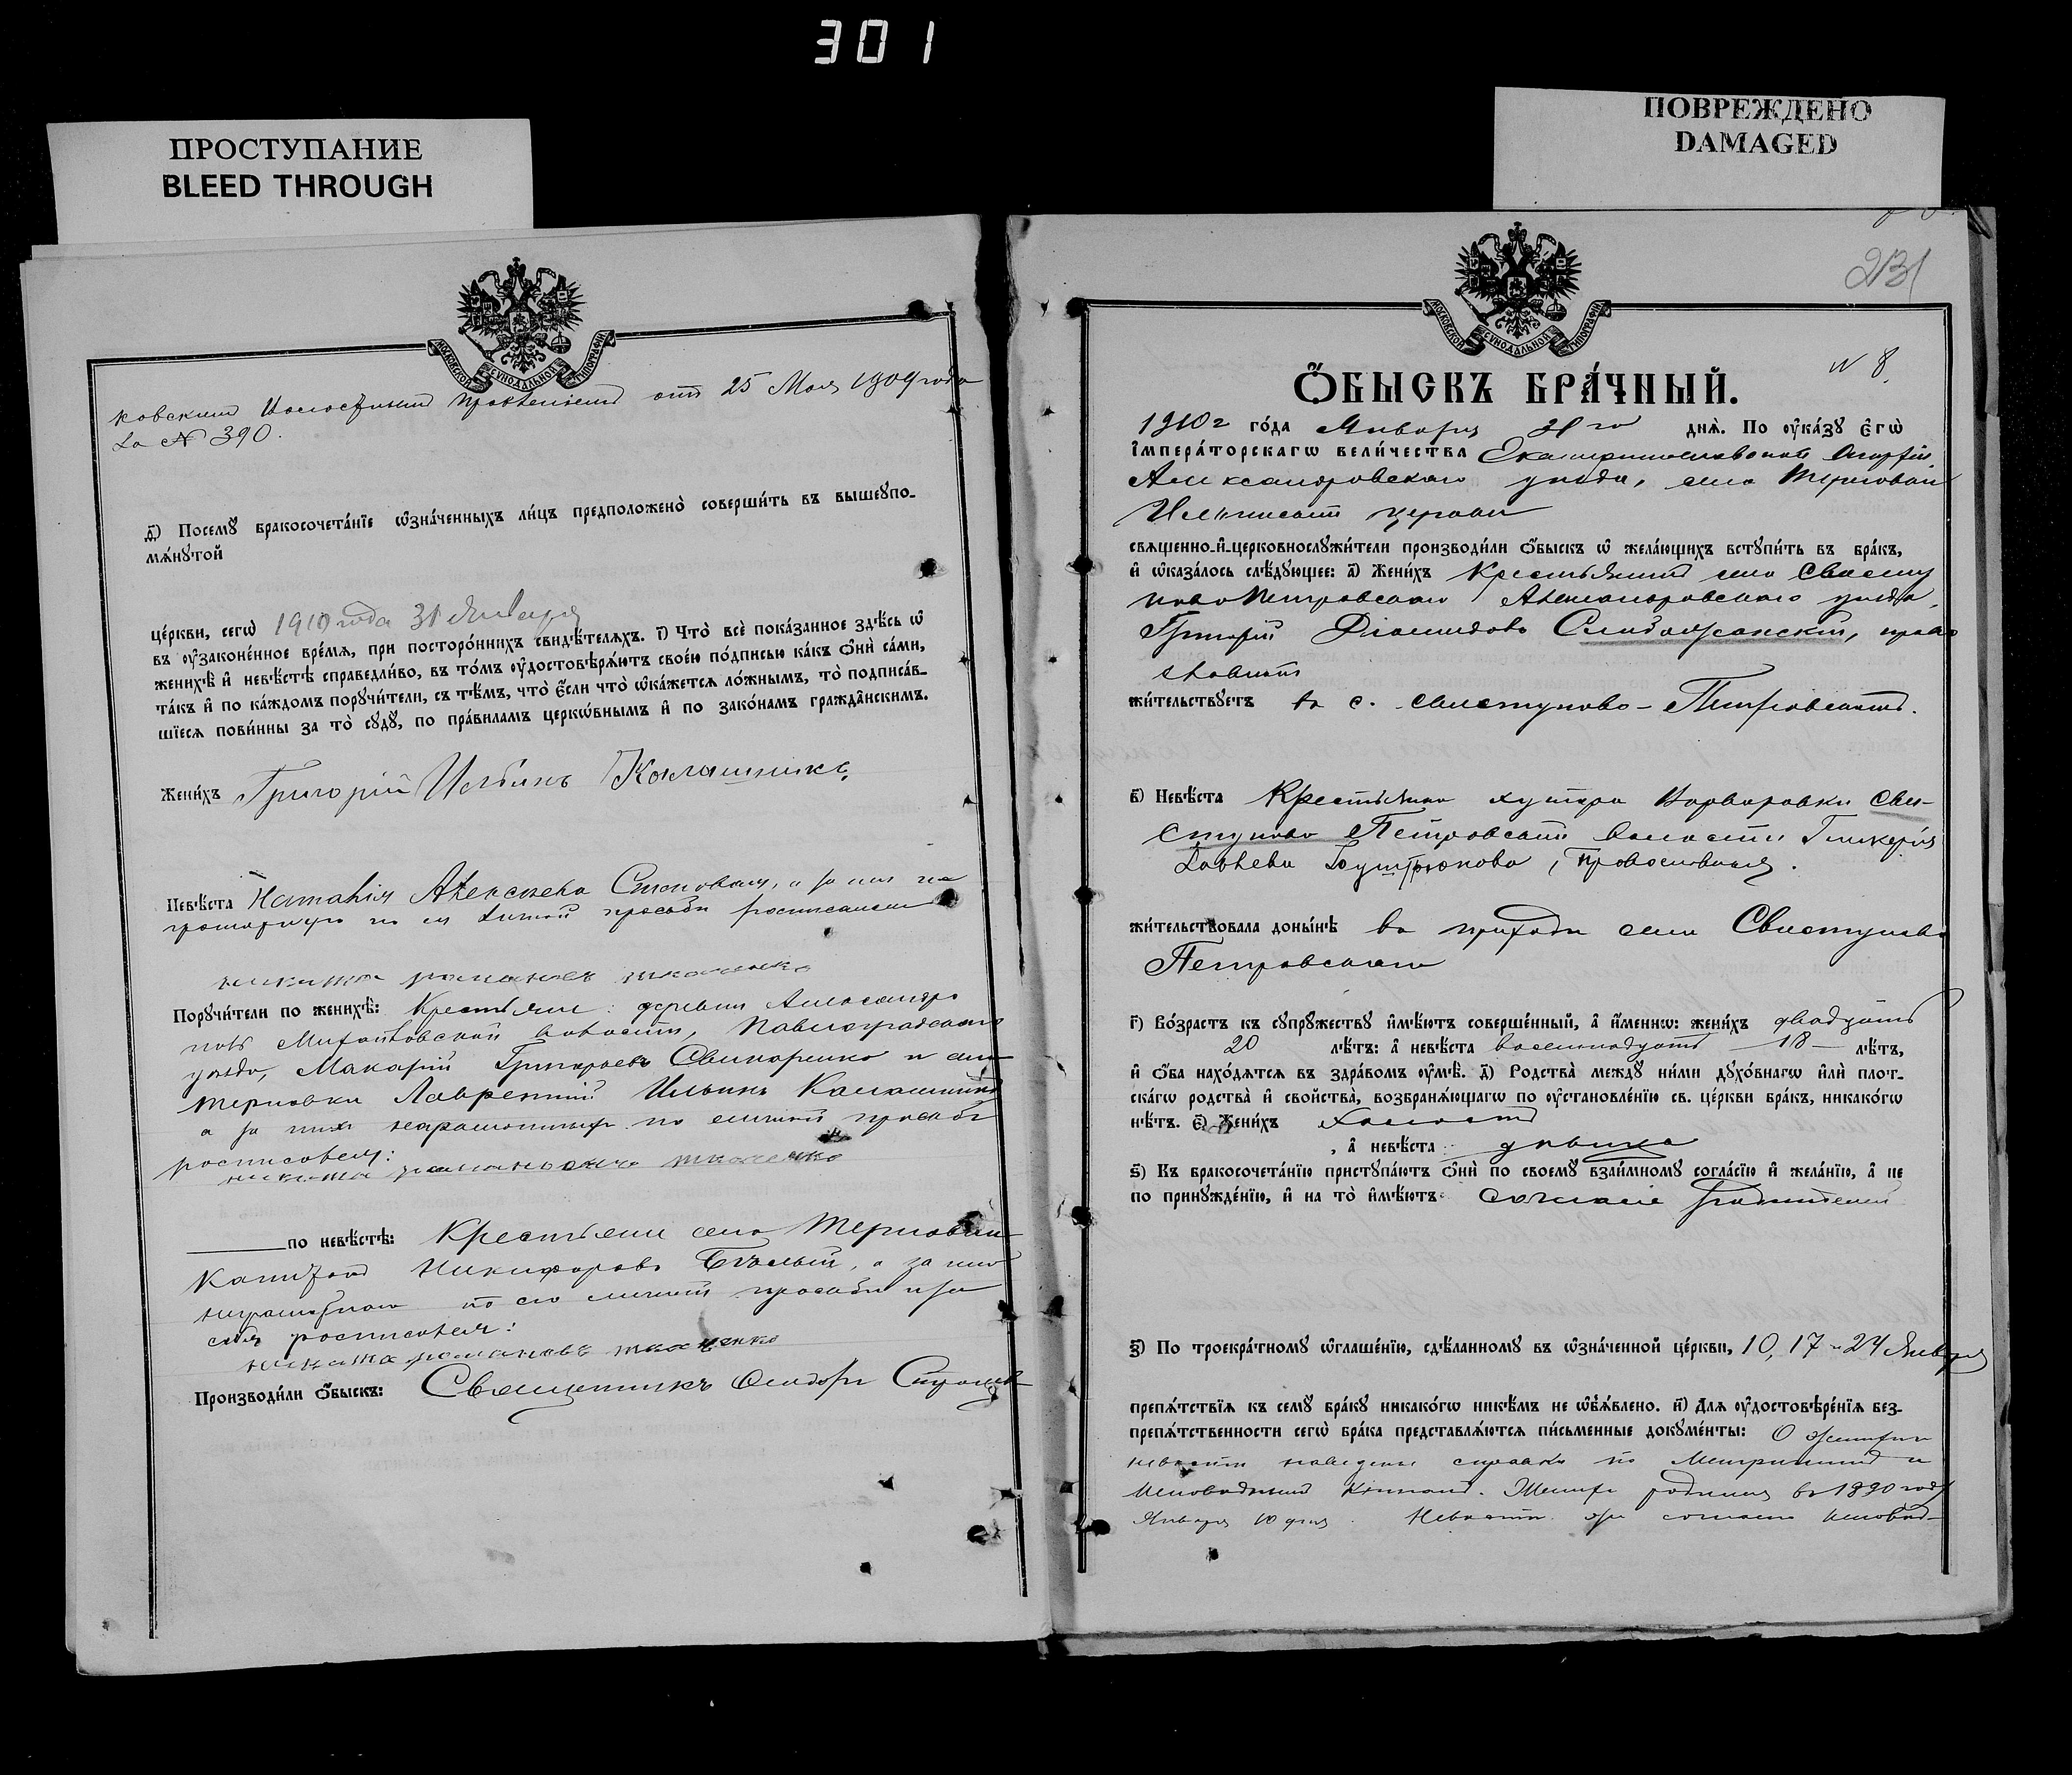 301
ПРОСТУПАНИЕ
BLEED THROUGH
ПОВРЕЖДЕНО
DAMAGED
МОСКОВСКОЙ СѴНОДАЛЬНОЙ ТИПОГРАФІИ
ковскимъ Волостнымъ Правленіемъ отъ 25 Мая 1909 года
за № 390.
д҃) Посемꙋ бракосочета́нїе ѡ҆зна́ченныхъ ли́цъ предположено̀ соверши́ть въ вышеꙋпо-
мѧ́нꙋтой
це́ркви, сегѡ̀ 1910 года 31 Января
въ ᲂу҆законе́нное вре́мѧ, при посторо́ннихъ свидѣ́телѧхъ. і҃) Что̀ всѐ пока́занное здѣ́сь ѡ҆
женихѣ̀ и҆ невѣ́стѣ справедли́во, въ то́мъ ᲂу҆достовѣрѧ́ютъ свое́ю по́дписью ка́къ ѻ҆нѝ са́ми,
та́къ и҆ по ка́ждомъ порꙋчи́тели, съ тѣ́мъ, что̀ є҆́сли что̀ ѡ҆ка́жетсѧ ло́жнымъ, то̀ подписа́в-
шїесѧ пови́нны за то̀ сꙋдꙋ̀, по пра́виламъ церкѡ́внымъ и҆ по зако́намъ гражда̑нскимъ.
Жени́хъ Григорій Ильинъ Калашникъ
Невѣ́ста Наталія Алексѣева, а за нея не
грамотную по ея личной просьбѣ росписался
никита романовъ ткаченко
Порꙋчи́тели по женихѣ̀: Крестьяне: деревни Александро
Михайловской волости, Павлоградскаго
уѣзда, Макарій Григорьевъ и села
Терновки Лаврентій Ильинъ Калашникъ
а за нихъ неграмотныхъ по личной просьбѣ
росписался:
никита ткаченко
по невѣ́стѣ: Крестьяне села Терновки
Никифоровъ Бѣлый, а за него
неграмотнаго по его личной просьбѣ и за
себя росписался:
никита романовъ ткаченко
Производи́ли ѻ҆́быскъ: Священникъ Ѳеодоръ
231
МОСКОВСКОЙ СѴНОДАЛЬНОЙ ТИПОГРАФІИ
N 8.
Ѻ҆́БЫСКЪ БРА́ЧНЫЙ.
1910 г го́да Января 31 го днѧ̀. По ᲂу҆ка́зꙋ є҆гѡ̀
і҆мпера́торскагѡ вели́чества Екатеринославской Епархіи
Александровскаго уѣзда, села Терновки
церкви
свѧщенно-и҆-церковнослꙋжи́тели производи́ли ѻ҆́быскъ ѡ҆ жела́ющихъ встꙋпи́ть въ бра́къ,
и҆ ѡ҆каза́лось слѣ́дꙋющее: а҃) Жени́хъ Крестьянинъ села Свисту
ново Петровскаго Александровскаго уѣзда,
Григорій Діомидовъ, право
славный
жи́тельствꙋетъ въ с. Свистуново-Петровскомъ.
в҃) Невѣ́ста Крестьянка хутора Варваровки Сви-
стуново Петровской волости Гликерія
Православная.
жи́тельствовала доны́нѣ въ приходѣ села Свистуново
Петровскаго
г҃) Во́зрастъ къ сꙋпрꙋ́жествꙋ и҆мѣ́ютъ соверше́нный, а҆ и҆́меннѡ: жени́хъ двадцать
20 лѣ́тъ: а҆ невѣ́ста восемнадцать 18 лѣ́тъ,
и҆ ѻ҆́ба нахо́дѧтсѧ въ здра́вомъ ᲂу҆мѣ̀. д҃) Родства̀ междꙋ̀ ни́ми дꙋхо́внагѡ и҆лѝ плот-
ска́гѡ родства̀ и҆ сво́йства̀, возбранѧ́ющагѡ по ᲂу҆становле́нїю св. це́ркви бра́къ, никако́гѡ
нѣ́тъ. є҃) Жени́хъ холостъ
, а҆ невѣ́ста дѣвица
ѕ҃) Къ бракосочета́нїю пристꙋпа́ютъ ѻ҆нѝ по своемꙋ̀ взаи́мномꙋ согла́сїю и҆ жела́нїю, а҆ не
по принꙋжде́нїю, и҆ на то̀ и҆мѣ́ютъ согласіе родителей
з҃) По троекра́тномꙋ ѡ҆глаше́нїю, сдѣ́ланномꙋ въ ѡ҆зна́ченной це́ркви, 10, 17 и 24 Января
препѧ́тствїѧ къ семꙋ̀ бра́кꙋ никако́гѡ никѣ́мъ не ѡ҆б̾ѧ́влено. и҃) Длѧ ᲂу҆достовѣре́нїѧ без-
препѧ́тственности сегѡ̀ бра́ка представлѧ́ютсѧ пи́сьменные докꙋме́нты: О женихѣ и
невѣстѣ наведены справки по Метрическимъ и
Исповѣднымъ книгамъ. Женихъ родился въ 1890 году
Января 10 дня. Невѣста же согласно исповѣд-